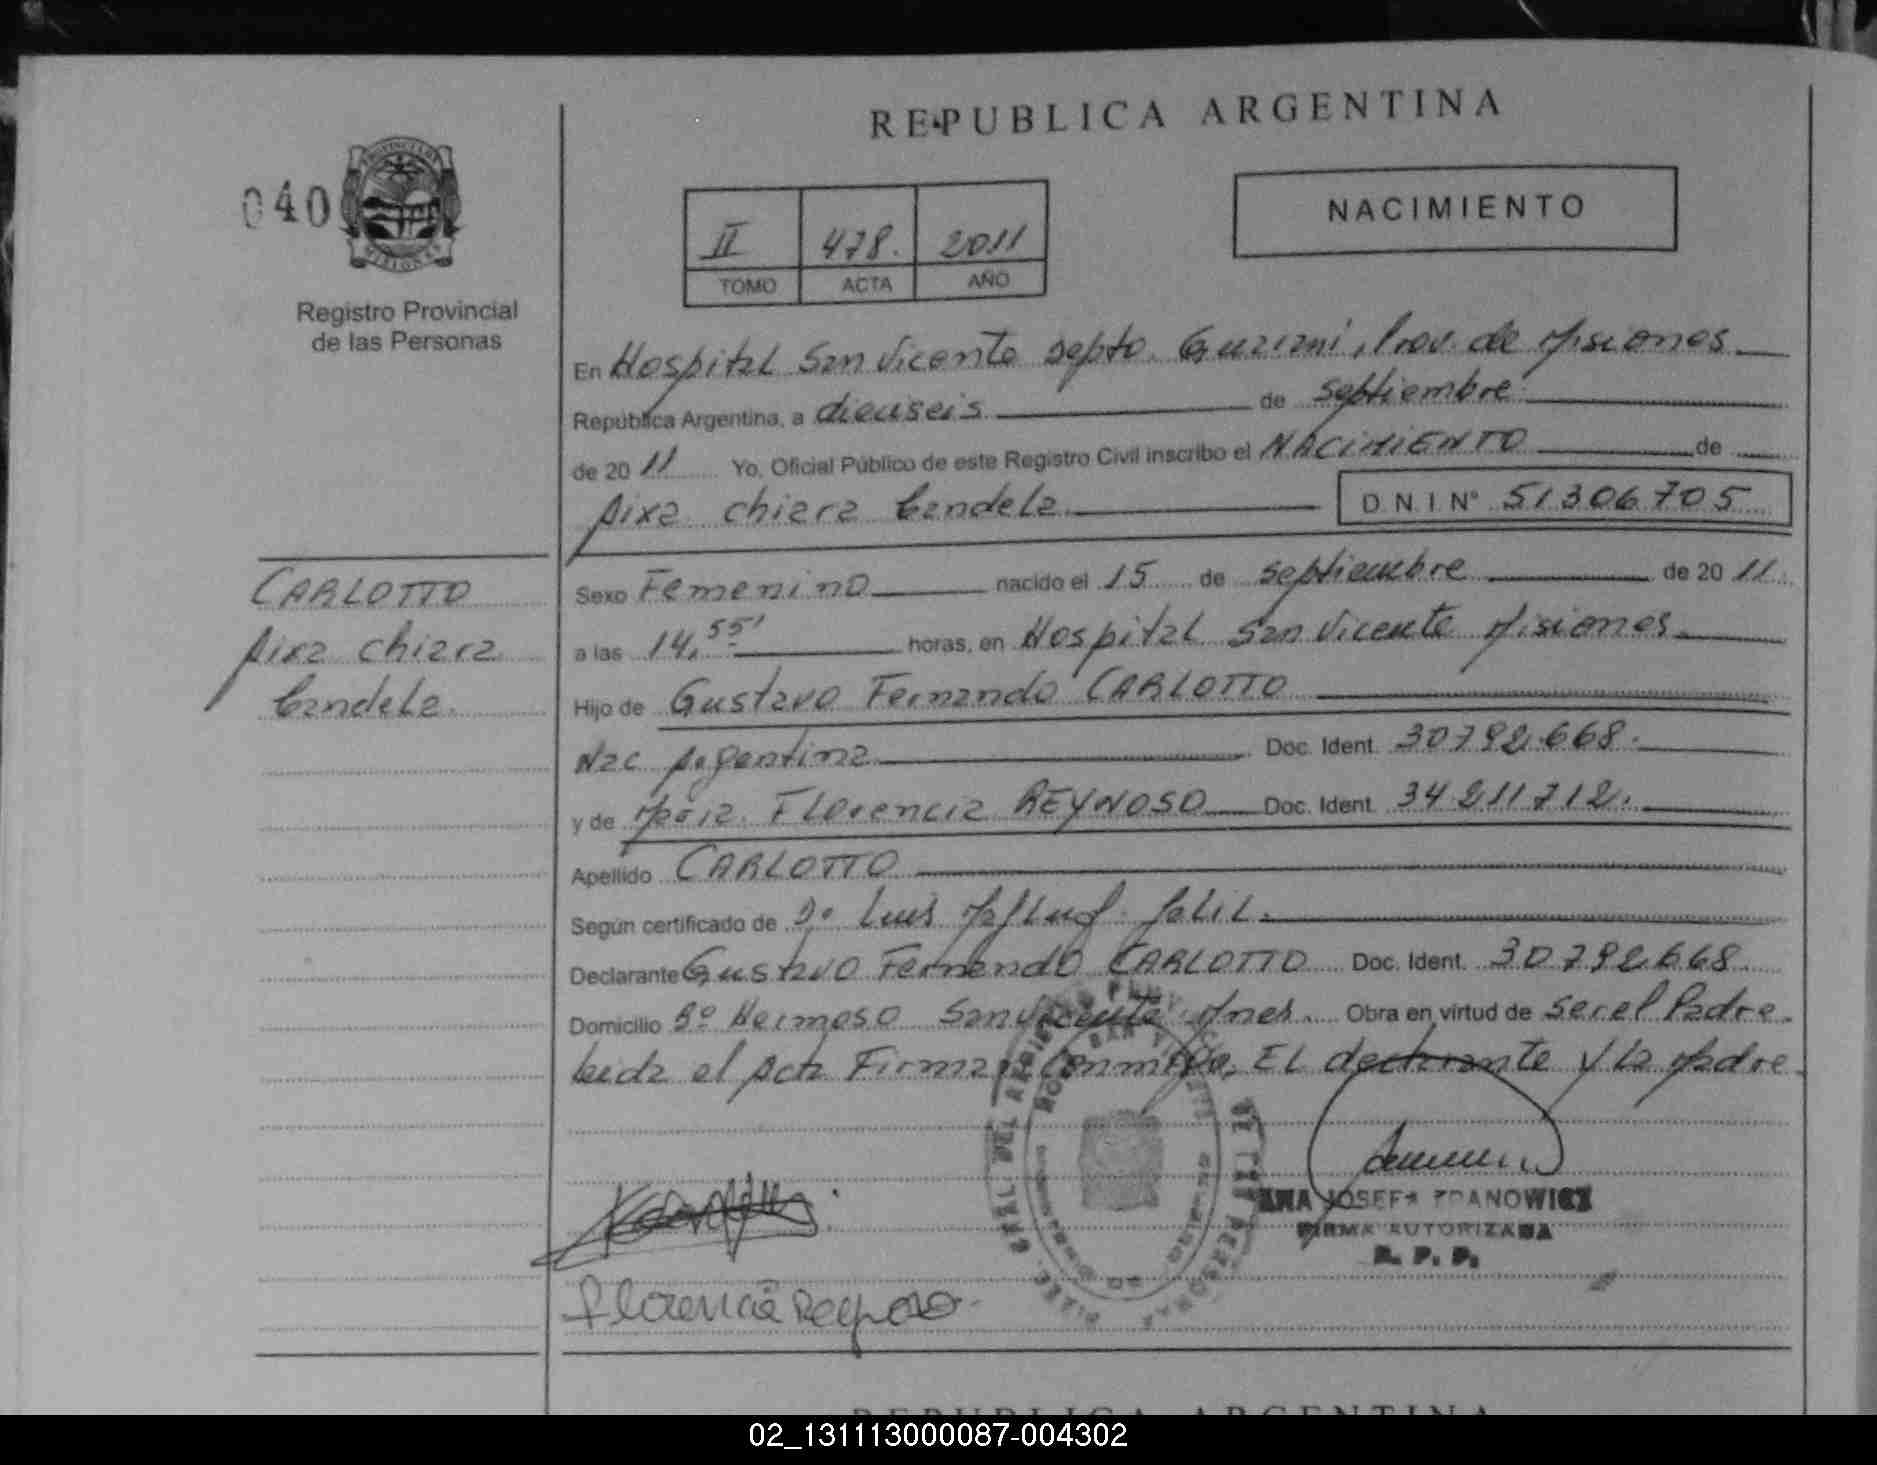 REPUBLICA ARGENTINA
040
PROVINCIA DE MISIONES
Registro Provincial
de las Personas
II 478. 2011
TOMO ACTA AÑO
NACIMIENTO
En Hospital San Vicente Depto. Guarani, Prov. de Misiones
República Argentina, a dieciseis de septiembre
de 20 11 Yo, Oficial Público de este Registro Civil inscribo el NACIMIENTO de
Aixa Chiara Candela D.N.I. N° 51306705
CARLOTTO
Aixa Chiara
Candela.
Sexo Femenino nacido el 15 de septiembre de 20 11
a las 14,55' horas, en Hospital San Vicente Misiones
Hijo de Gustavo Fernando CARLOTTO
Nac Argentina Doc. Ident. 30792668.
y de Maria Florencia REYNOSO Doc. Ident. 34211712.
Apellido CARLOTTO
Según certificado de Dr Luis Jalil.
Declarante Gustavo Fernando CARLOTTO Doc. Ident. 30792668
Domicilio Bº Hermoso San Vicente Mnes. Obra en virtud de ser el Padre.
Leida el Acta Firman Conmigo, EL declarante y La Madre.
ANA JOSEFA
FIRMA AUTORIZADA
R. P. P.
Florencia Reynoso
REPUBLICA ARGENTINA
02_131113000087-004302